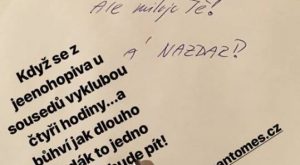 Ale miluju Tě!
A' NAZDAZ!!
Když se z
jeenohopiva u
sousedů vyklubou
čtyři hodiny...a
bůhví jak dlouho
dák to jedno
bude pít!
antomes.cz